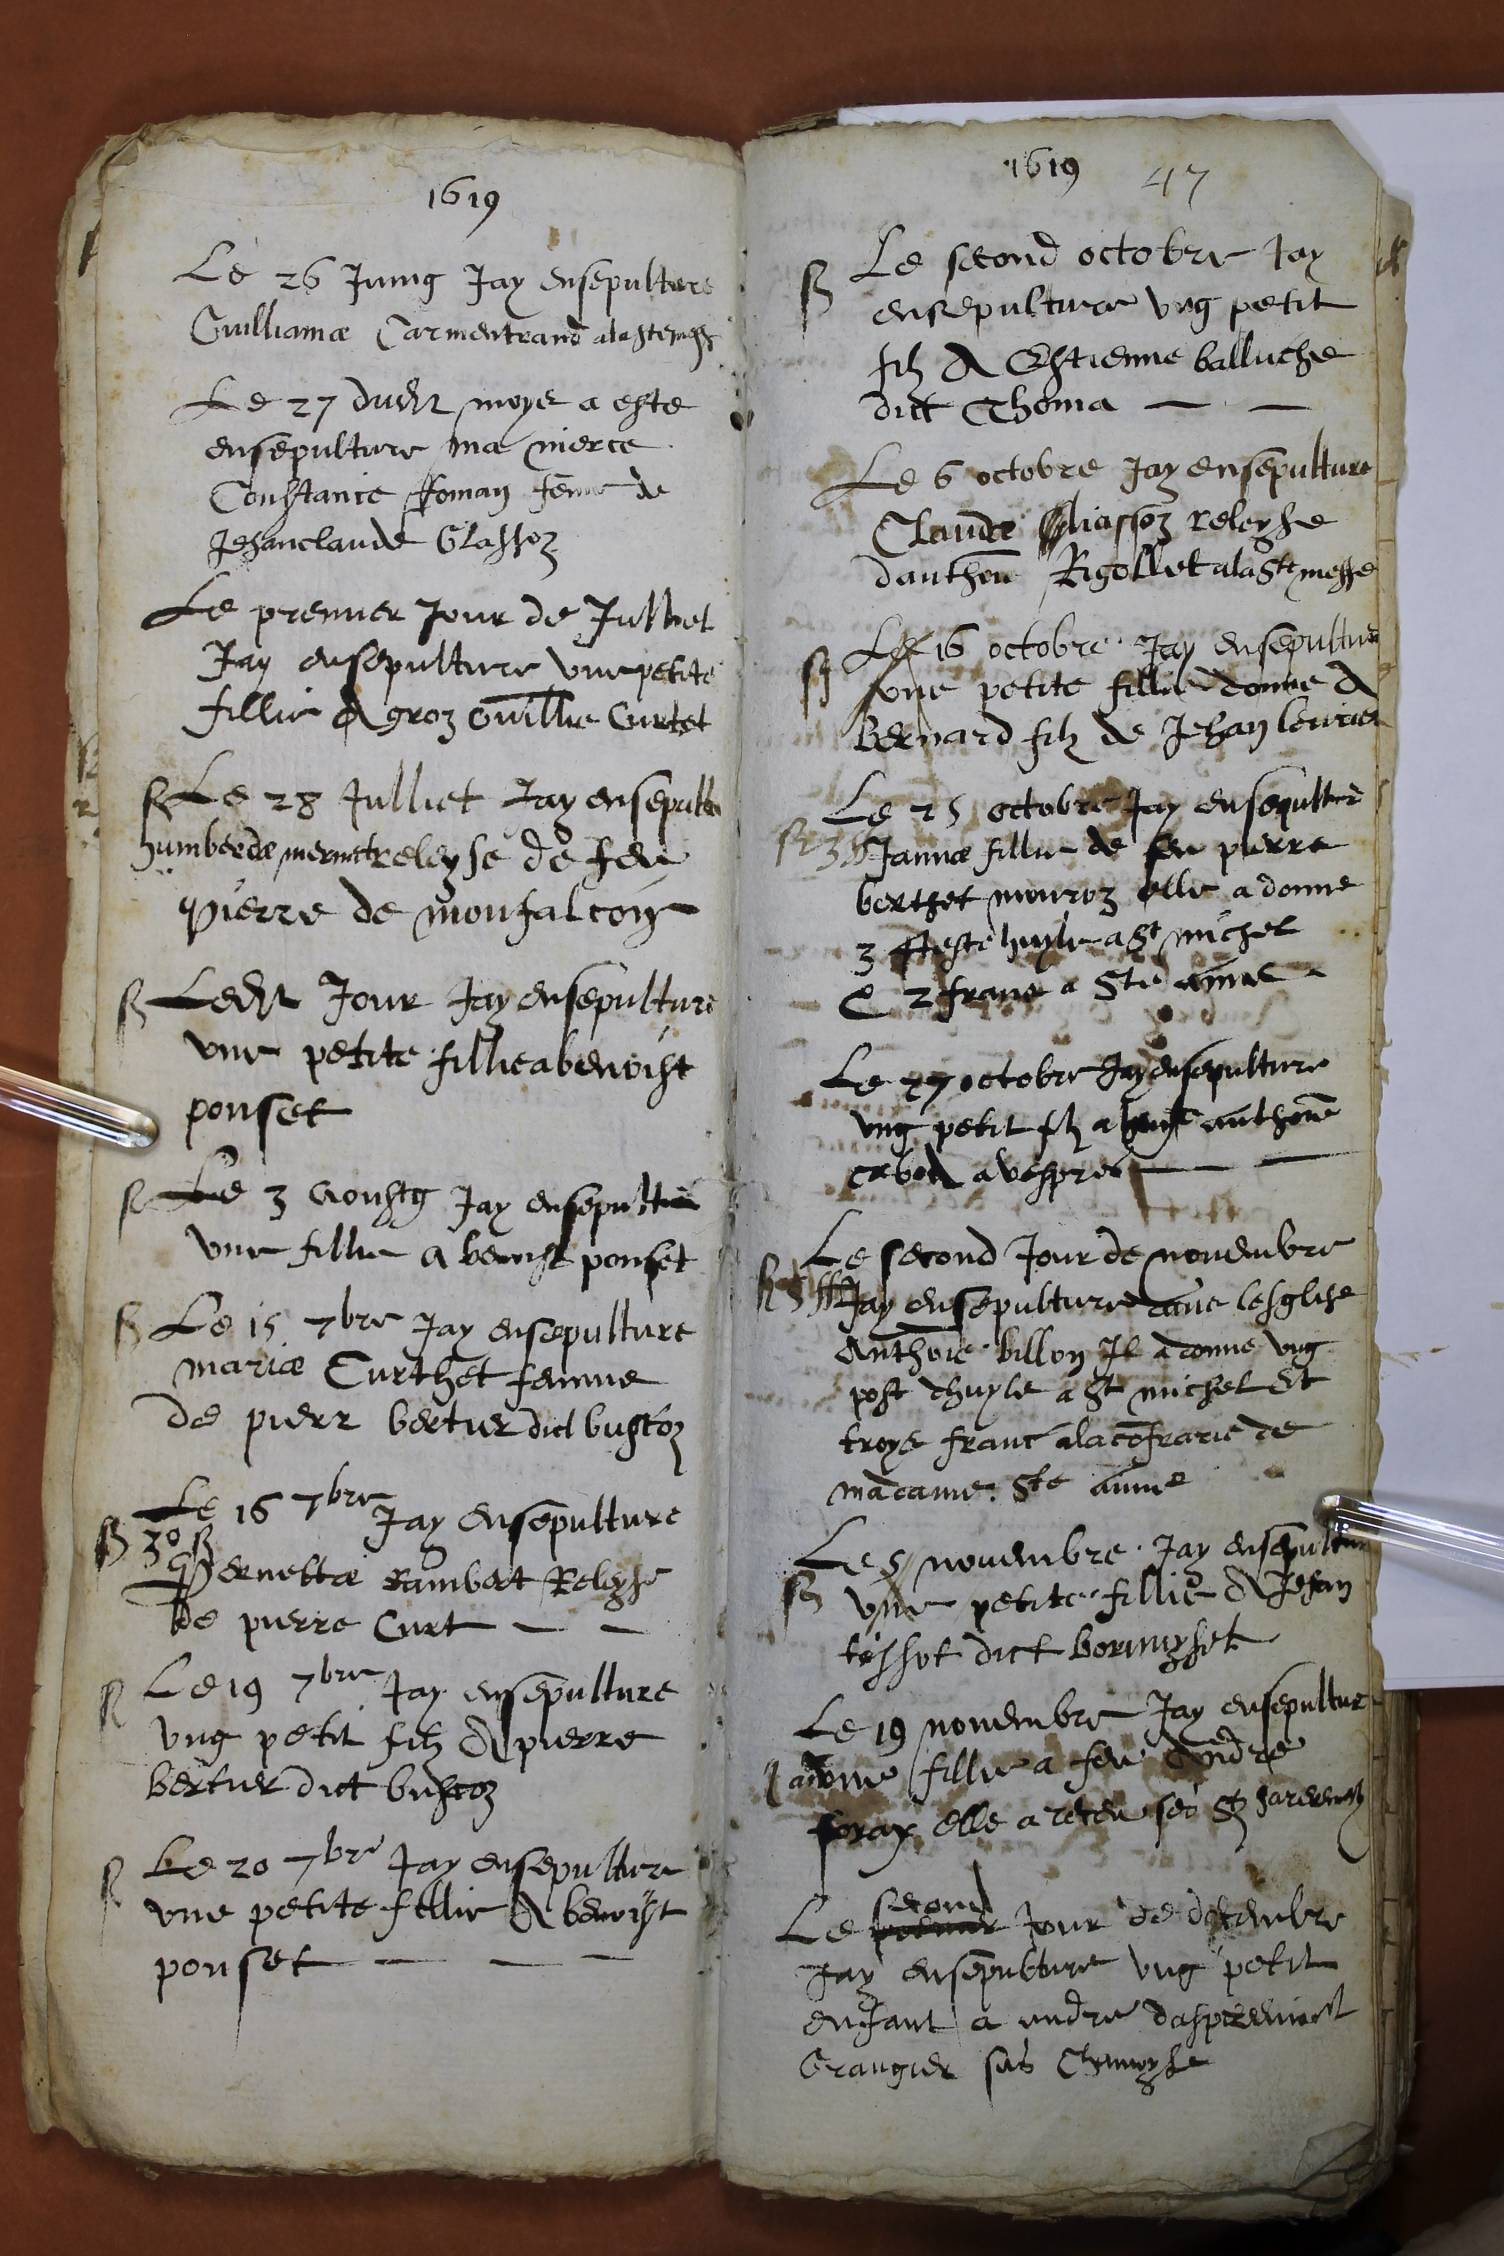 1619
Le 26 Juing Jay ensepulture
Guilliamæ Carmentrand a la ste messe
Le 27 dudit moys a este
ensepulture ma nierce
Constance Roman feme de
Jehanclaude Glassoz
Le premier Jour de Julliet
Jay ensepulture une petite
fillie A groz Guillie Curtet
Le 28 Julliet Jay ensepultu
humberdæ mermet releyse de feu
pierre de monfalcon
Ledit Jour Jay ensepulture
une petite fillie a benoist
ponset
Le 3 Aoustz Jay ensepultu
une fillie a benoist ponset
Le 15 7bre Jay ensepulture
mariæ Curthet femme
de pierr bertier dict bustoz
Le 16 7bre Jay ensepulture
Pernettæ Rambert Releyse
de pierre Curt
Le 19 7bre Jay ensepulture
ung petit filz A pierre
bertier dict bustoz
Le 20 7bre Jay ensepulture
une petite fillie A benoist
ponset
1619 47
Le second octobre Jay
ensepulture ung petit
filz A Estienne balluche
dict Thoma
Le 6 octobre Jay ensepulture
Claudæ releyse
danthoine Rigollet a la Ste messe
Le 16 octobre Jay ensepulture
une petite fillie donne A
bernard filz de Jehan
Le 25 octobre Jay ensepulter
Jannæ fillie de feu pierre
berthet mouroz elle a donne
3 huyle a St michel
& 2 franc a Ste anne
Le 27 octobre Jay ensepulture
ung petit filz a anthoine
a vespres
Le second Jour de novembre
Jay ensepulture lesglise
Anthoine billon Il a donne ung
post dhuyle a St michel Et
troys franc a la cofrarie de
madame Ste anne
Le 5 novembre Jay ensepultur
une petite fillie A Jehan
tissot dict
Le 19 novembre Jay ensepultur
fillie a feu Andre
elle a receu ses
second
Le Jour de decembre
Jay ensepulture ung petit
enfant a andre
Grangier